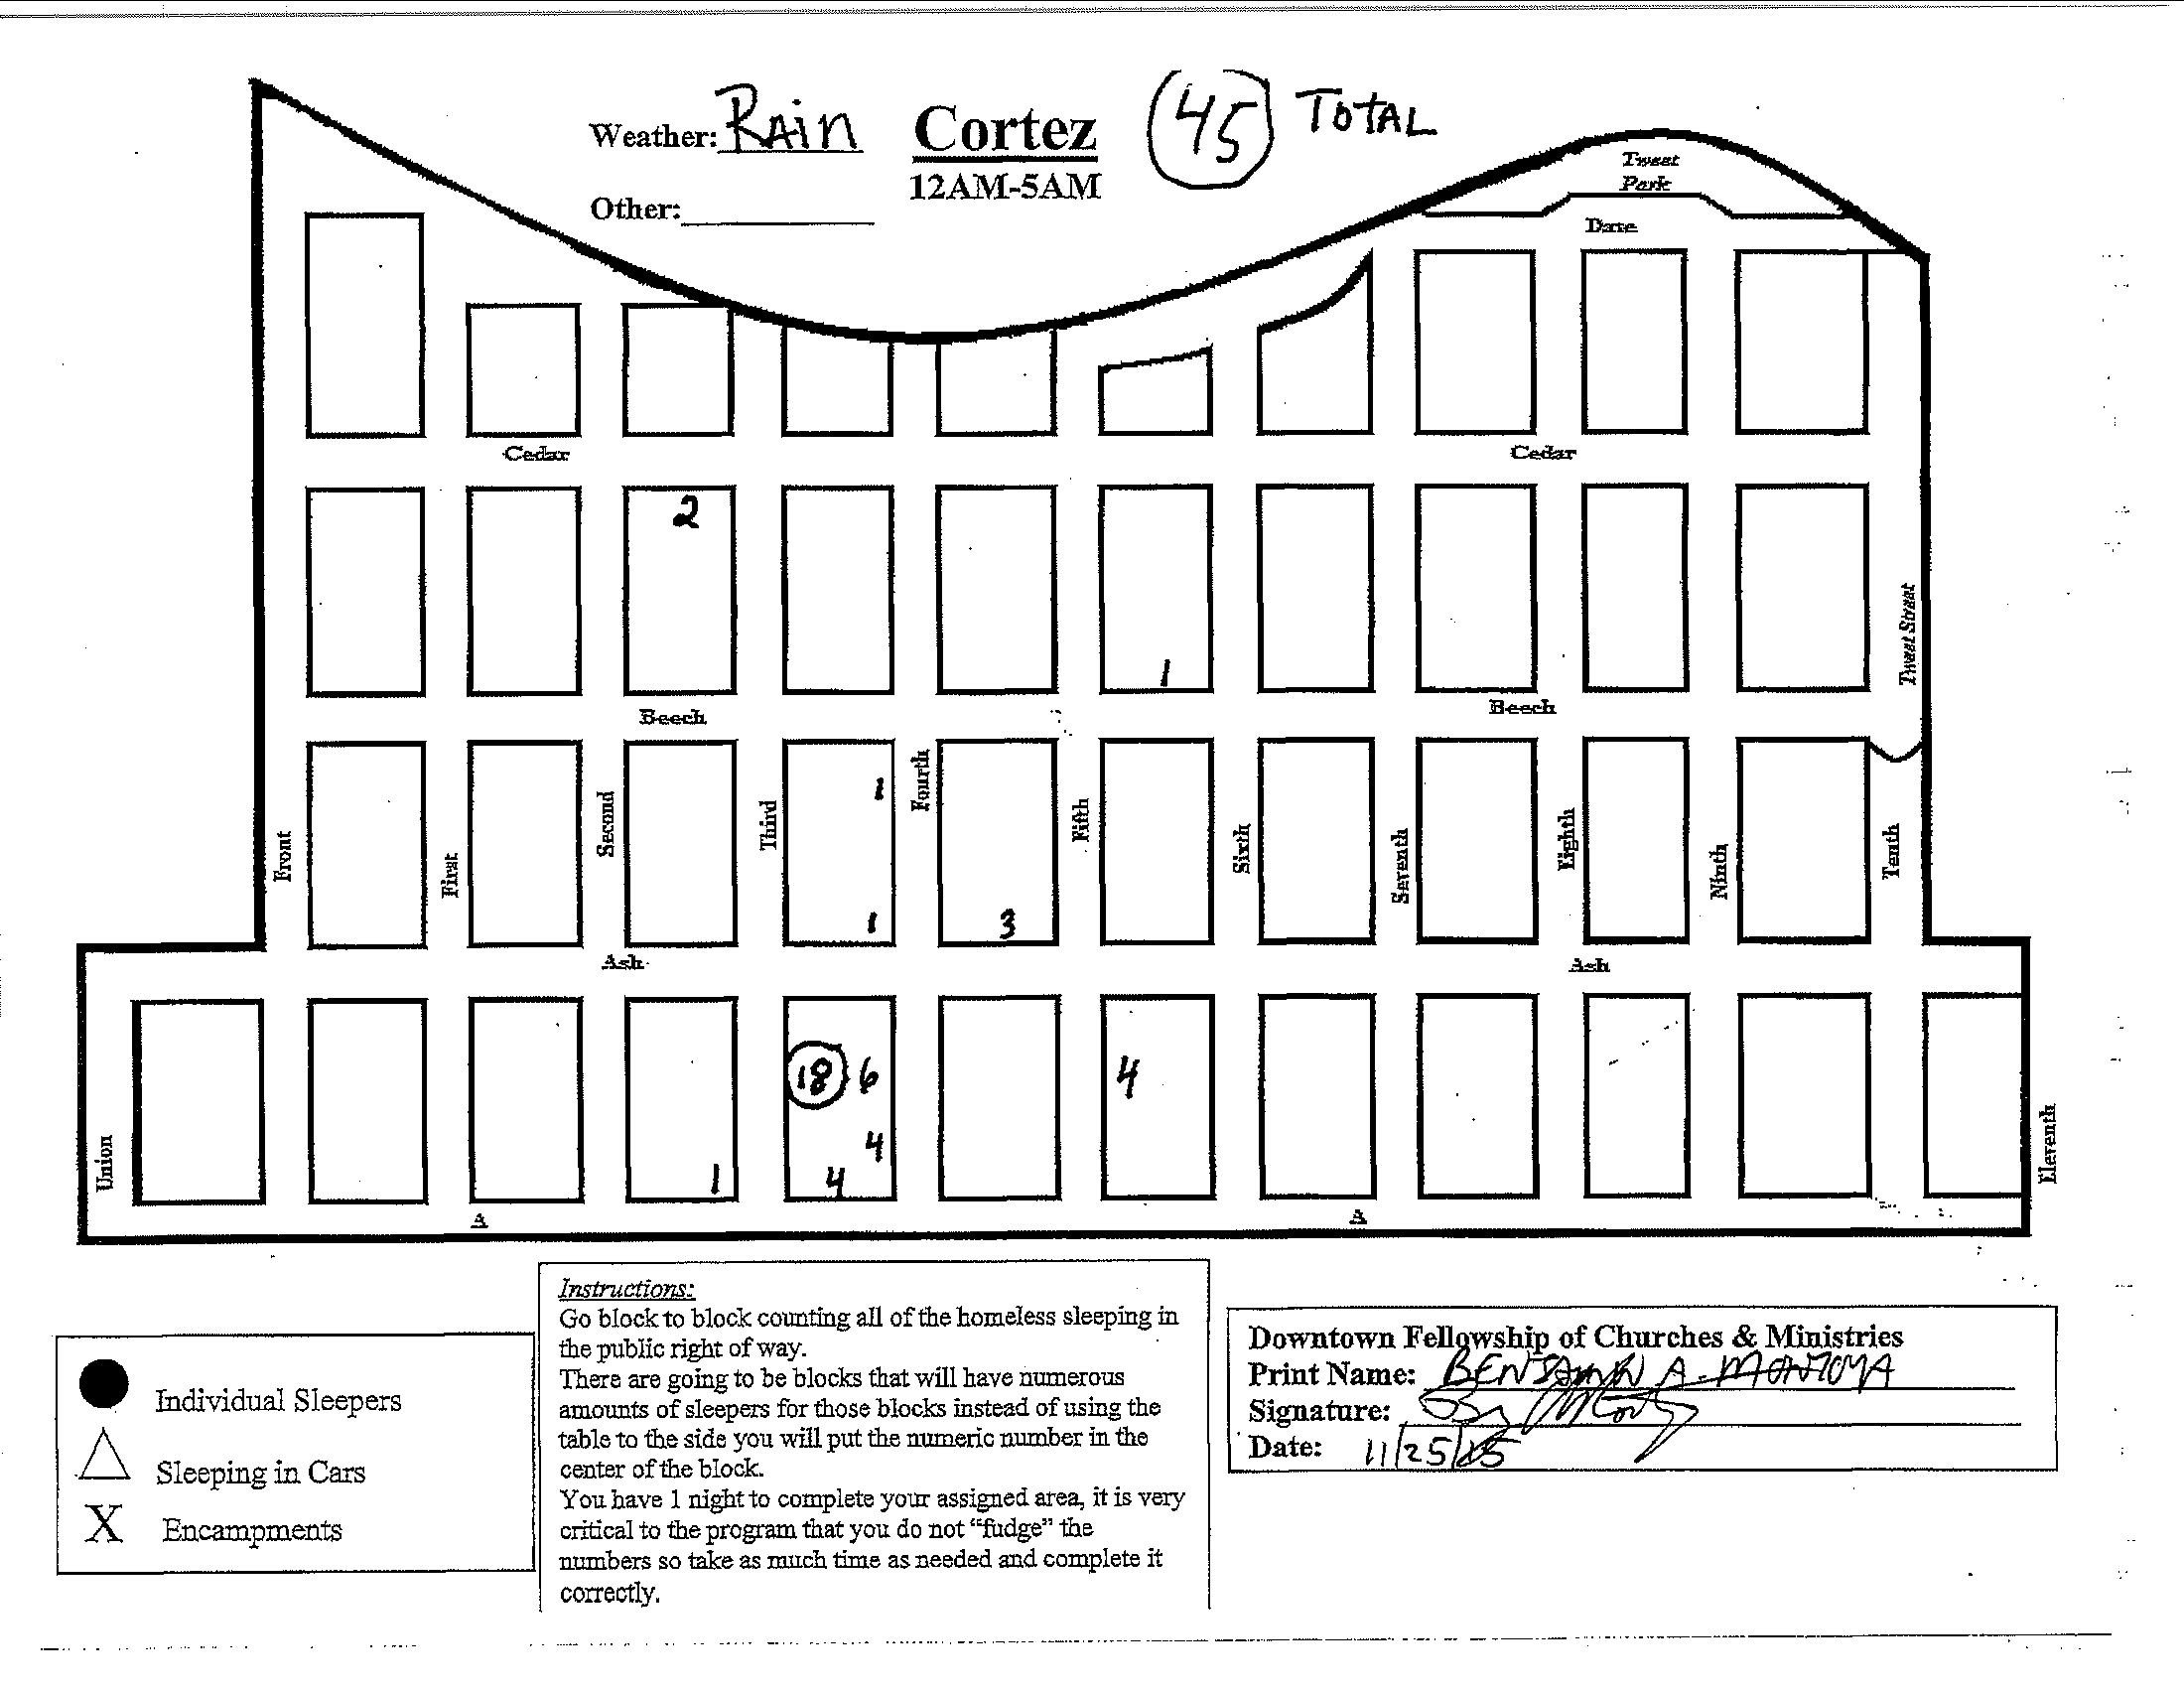 Weather: RAIN
Cortez
45 TOTAL
12AM-5AM
Other:
Tweet
Park
Date
Cedar
Cedar
2
1
Tweet Street
Beech
Beech
Front
First
Second
Third
1
1
Fourth
3
Fifth
Sixth
Seventh
Eighth
Ninth
Tenth
Ash
Ash
Union
1
18 6
4
4
4
Eleventh
A
A
Individual Sleepers
Sleeping in Cars
X Encampments
Instructions:
Go block to block counting all of the homeless sleeping in
the public right of way.
There are going to be blocks that will have numerous
amounts of sleepers for those blocks instead of using the
table to the side you will put the numeric number in the
center of the block.
You have 1 night to complete your assigned area, it is very
critical to the program that you do not “fudge” the
numbers so take as much time as needed and complete it
correctly.
Downtown Fellowship of Churches & Ministries
Print Name: BENJAMIN A. MONTOYA
Signature:
Date: 11/25/15